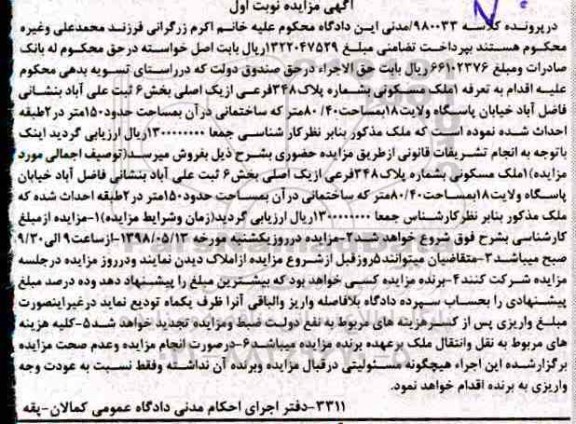 آگهی مزایده نوبت اول
درپرونده کلاسه ۹۸۰۰۳۳/مدنی ایـن دادگاه محکوم علیه خانـم اکرم زرگرانی فرزنـد محمدعلی وغیره
محکـوم هسـتند بپرداخـت تضامنی مبلـغ ۱۳۲۲۰۴۷۵۲۹ریال بابت اصل خواسـته درحق محکوم له بانک
صادرات ومبلغ ۶۶۱۰۲۳۷۶ ریال بابت حق الاجراء درحق صندوق دولت که درراستای تسویه بدهی محکوم
علیـه اقدام به تعرفه ۱ملک مسـکونی بشـماره پلاک۳۴۸فرعـی ازیک اصلی بخش۶ ثبت علی آباد بنشـانی
فاضل آباد خیابان پاسـگاه ولایت۱۸بمساحت۸۰/۴۰متر که ساختمانی درآن بمساحت حدود۱۵۰متر در۲طبقه
احداث شـده نموده اسـت که ملک مذکور بنابر نظرکار شناسـی جمعا ۱۳۰۰۰۰۰۰۰۰ریال ارزیابی گردید اینک
باتوجه به انجام تشـریفات قانونی ازطریق مزایده حضوری بشـرح ذیل بفروش میرسـد(توصیف اجمالی مورد
مزایـده)۱ملک مسـکونی بشـماره پلاک۳۴۸فرعی ازیک اصلی بخش۶ ثبت علی آباد بنشـانی فاضل آباد خیابان
پاسـگاه ولایت۱۸بمسـاحت۸۰/۴۰متر که سـاختمانی درآن بمسـاحت حدود۱۵۰متر در۲طبقه احداث شده که
ملک مذکور بنابر نظرکارشـناس جمعا ۱۳۰۰۰۰۰۰۰۰ریال ارزیابی گردید(زمان وشرایط مزایده)۱-مزایده ازمبلغ
کارشناسی بشرح فوق شروع خواهد شـد۲-مزایده درروزیکشنبه مورخه ۱۳۹۸/۰۵/۱۳-ازساعت۹ الی۹/۳۰
صبح میباشـد۳-متقاضیان میتوانند۵روزقبل ازشـروع مزایده ازاملاک دیدن نمایند ودرروز مزایده درجلسه
مزایده شـرکت کنند۴-برنده مزایده کسـی خواهد بود که بیشـترین مبلغ را پیشـنهاد دهد وده درصد مبلغ
پیشـنهادی را بحسـاب سـپرده دادگاه بلافاصله واریز والباقی آنرا ظرف یکماه تودیع نماید درغیراینصورت
مبلـغ واریزی پس از کسـرهزینه های مربوط به نفع دولـت ضبط ومزایده تجدید خواهد شـد۵-کلیه هزینه
های مربوط به نقل وانتقال ملک برعهده برنده مزایده میباشـد۶-درصورت انجام مزایده وعدم صحت مزایده
برگزارشـده این اجراء هیچگونه مسـئولیتی درقبال مزایده وبرنده آن نداشـته وفقط نسبت به عودت وجه
واریزی به برنده اقدام خواهد نمود.
۳۳۱۱-دفتر اجرای احکام مدنی دادگاه عمومی کمالان-یقه